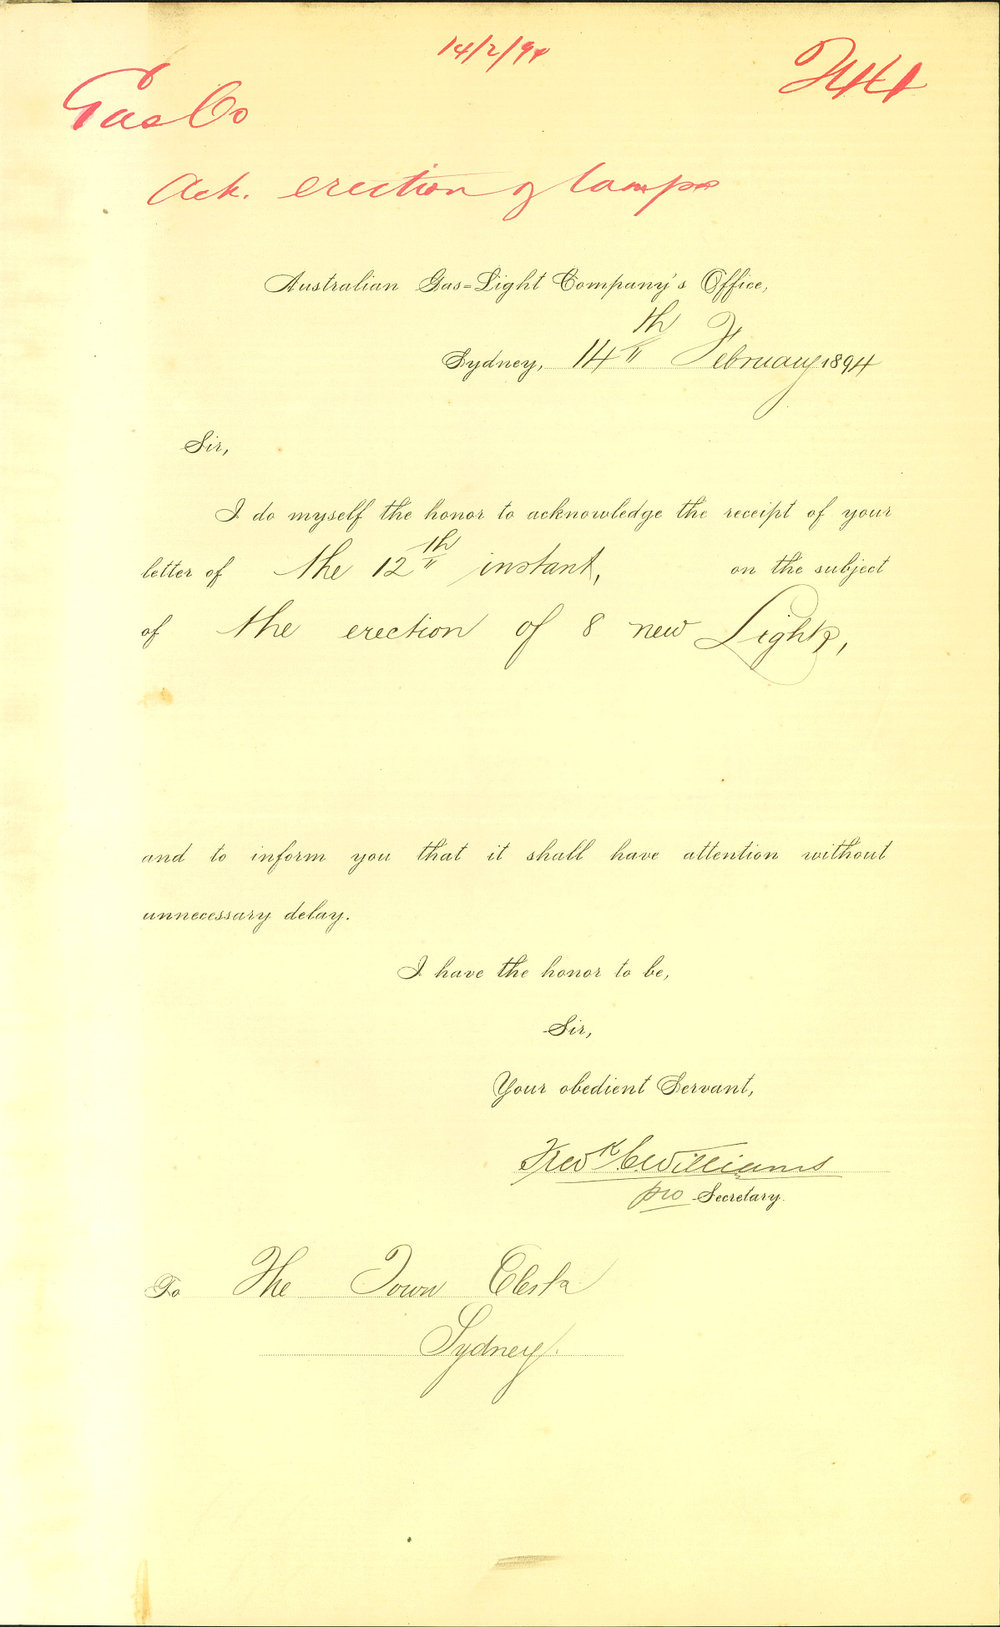 14/2/94
Gas Co
Ack. erection of lamps
Australian Gas-Light Company's Office,
Sydney, 14th February 1894
Sir,
I do myself the honor to acknowledge the receipt of your
letter of the 12th instant, on the subject
of the erection of 8 new Lights,
and to inform you that it shall have attention without
unnecessary delay.
I have the honor to be,
Sir,
Your obedient Servant,
Fredk C Williams
pro Secretary.
To The Town Clerk
Sydney.